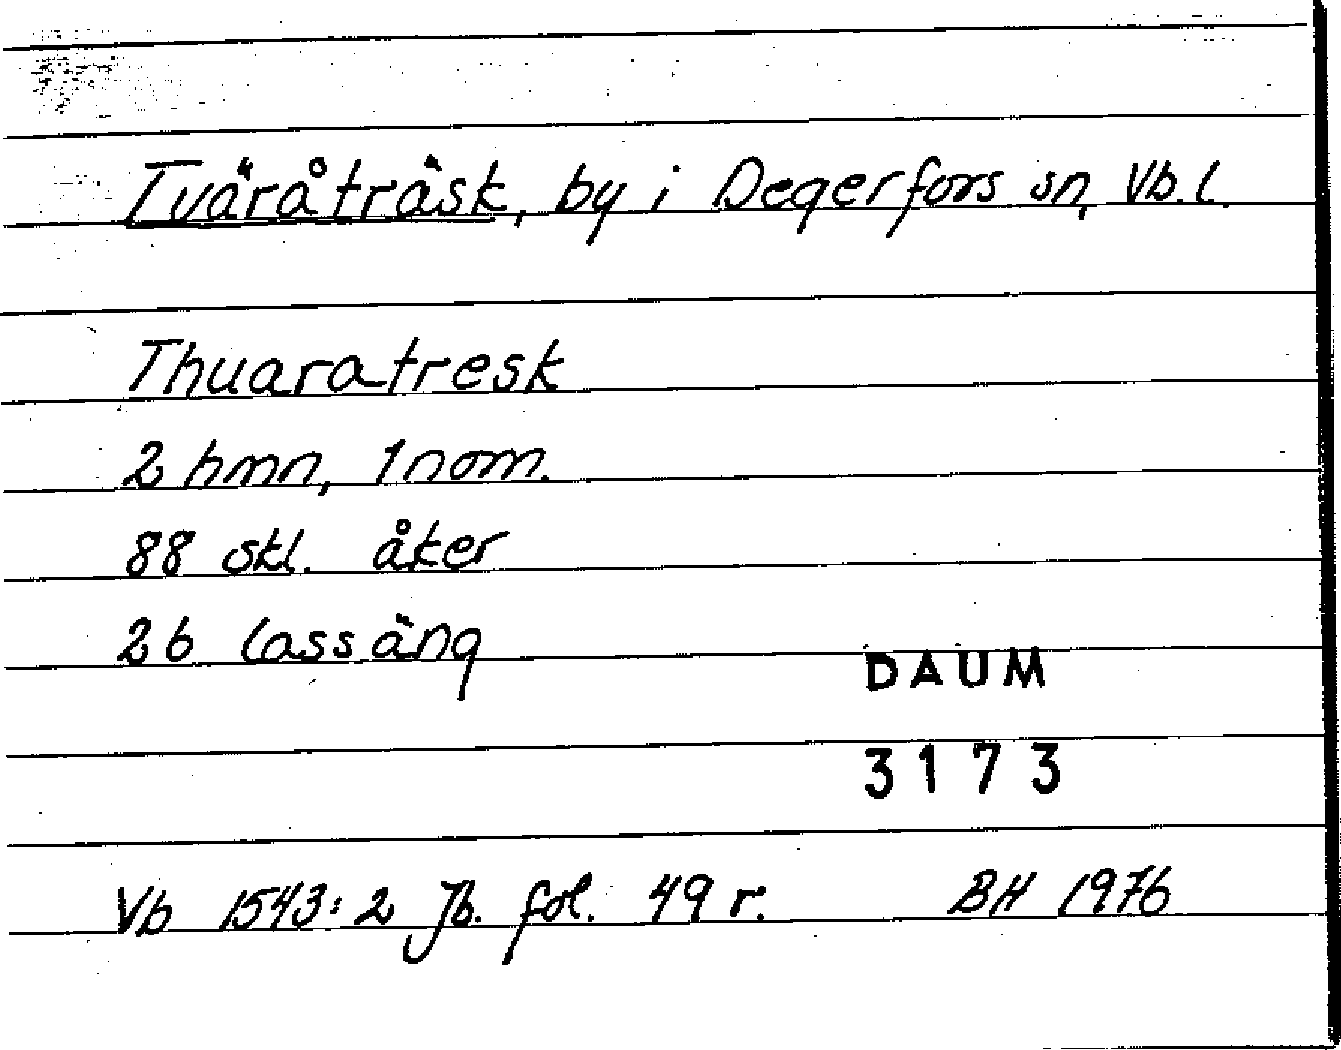 Tväråträsk, by i Degerfors sn, Vb.l.
Thuaratresk
2 hmn, 1 nom.
88 skl. åker
26 lass äng
DAUM
3173
Vb 1543:2 Jb. fol. 49 r. BH 1976